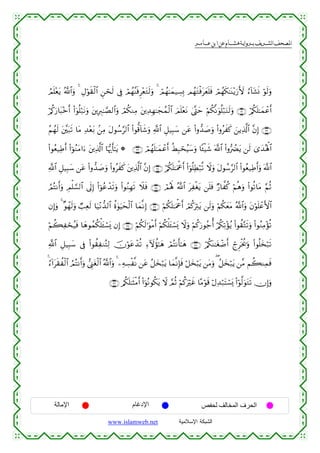 المصحف الشريف برواية هشام عن ابن عامر
وَلَوْ نَشَآءُ لَأَرَيْنَٰكَهُمْ فَلَعَرَفْتَهُم بِسِيمَٰهُمْ ۚ وَلَتَعْرِفَنَّهُمْ فِى لَحْنِ ٱلْقَوْلِ ۚ وَٱللَّهُ يَعْلَمُ
أَعْمَٰلَكُمْ ۝٣٠ وَلَنَبْلُوَنَّكُمْ حَتَّىٰ نَعْلَمَ ٱلْمُجَٰهِدِينَ مِنكُمْ وَٱلصَّٰبِرِينَ وَنَبْلُوَا۟ أَخْبَارَكُمْ
۝٣١ إِنَّ ٱلَّذِينَ كَفَرُوا۟ وَصَدُّوا۟ عَن سَبِيلِ ٱللَّهِ وَشَآقُّوا۟ ٱلرَّسُولَ مِنۢ بَعْدِ مَا تَبَيَّنَ لَهُمُ
ٱلْهُدَىٰ لَن يَضُرُّوا۟ ٱللَّهَ شَيْـًٔا وَسَيُحْبِطُ أَعْمَٰلَهُمْ ۝٣٢ ۞ يَٰٓأَيُّهَا ٱلَّذِينَ ءَامَنُوٓا۟ أَطِيعُوا۟
ٱللَّهَ وَأَطِيعُوا۟ ٱلرَّسُولَ وَلَا تُبْطِلُوٓا۟ أَعْمَٰلَكُمْ ۝٣٣ إِنَّ ٱلَّذِينَ كَفَرُوا۟ وَصَدُّوا۟ عَن سَبِيلِ ٱللَّهِ
ثُمَّ مَاتُوا۟ وَهُمْ كُفَّارٌ فَلَن يَغْفِرَ ٱللَّهُ لَهُمْ ۝٣٤ فَلَا تَهِنُوا۟ وَتَدْعُوٓا۟ إِلَى ٱلسَّلْمِ وَأَنتُمُ
ٱلْأَعْلَوْنَ وَٱللَّهُ مَعَكُمْ وَلَن يَتِرَكُمْ أَعْمَٰلَكُمْ ۝٣٥ إِنَّمَا ٱلْحَيَوٰةُ ٱلدُّنْيَا لَعِبٌ وَلَهْوٌ ۚ وَإِن
تُؤْمِنُوا۟ وَتَتَّقُوا۟ يُؤْتِكُمْ أُجُورَكُمْ وَلَا يَسْـَٔلْكُمْ أَمْوَٰلَكُمْ ۝٣٦ إِن يَسْـَٔلْكُمُوهَا فَيُحْفِكُمْ
تَبْخَلُوا۟ وَيُخْرِجْ أَضْغَٰنَكُمْ ۝٣٧ هَٰٓأَنتُمْ هَٰٓؤُلَآءِ تُدْعَوْنَ لِتُنفِقُوا۟ فِى سَبِيلِ ٱللَّهِ
فَمِنكُم مَّن يَبْخَلُ ۖ وَمَن يَبْخَلْ فَإِنَّمَا يَبْخَلُ عَن نَّفْسِهِۦ ۚ وَٱللَّهُ ٱلْغَنِىُّ وَأَنتُمُ ٱلْفُقَرَآءُ ۚ
وَإِن تَتَوَلَّوْا۟ يَسْتَبْدِلْ قَوْمًا غَيْرَكُمْ ثُمَّ لَا يَكُونُوٓا۟ أَمْثَٰلَكُم ۝٣٨
الحرف المخالف لحفص الإدغام الإمالة
الشبكة الإسلامية www.islamweb.net